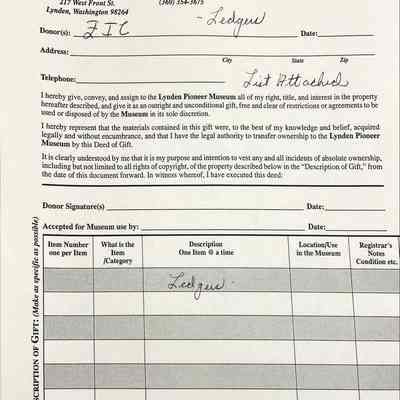 217 West Front St. (360) 354-3675
Lynden, Washington 98264
- Ledgers
Donor(s): FIC Date:
Address:
City State Zip
Telephone: List Attached
I hereby give, convey, and assign to the Lynden Pioneer Museum all of my right, title, and interest in the property
hereafter described, and give it as an outright and unconditional gift, free and clear of restrictions or agreements to be
used or disposed of by the Museum in its sole discretion.
I hereby represent that the materials contained in this gift were, to the best of my knowledge and belief, acquired
legally and without encumbrance, and that I have the legal authority to transfer ownership to the Lynden Pioneer
Museum by this Deed of Gift.
It is clearly understood by me that it is my purpose and intention to vest any and all incidents of absolute ownership,
including but not limited to all rights of copyright, of the property described below in the "Description of Gift," from
the date of this document forward. In witness whereof, I have executed this deed:
Donor Signature(s) Date:
Accepted for Museum use by: Date:
Item Number What is the Description Location/Use Registrar's
one per Item Item One Item @ a time in the Museum Notes
/Category Condition etc.
Ledgers -
SCRIPTION OF GIFT: (Make as specific as possible)